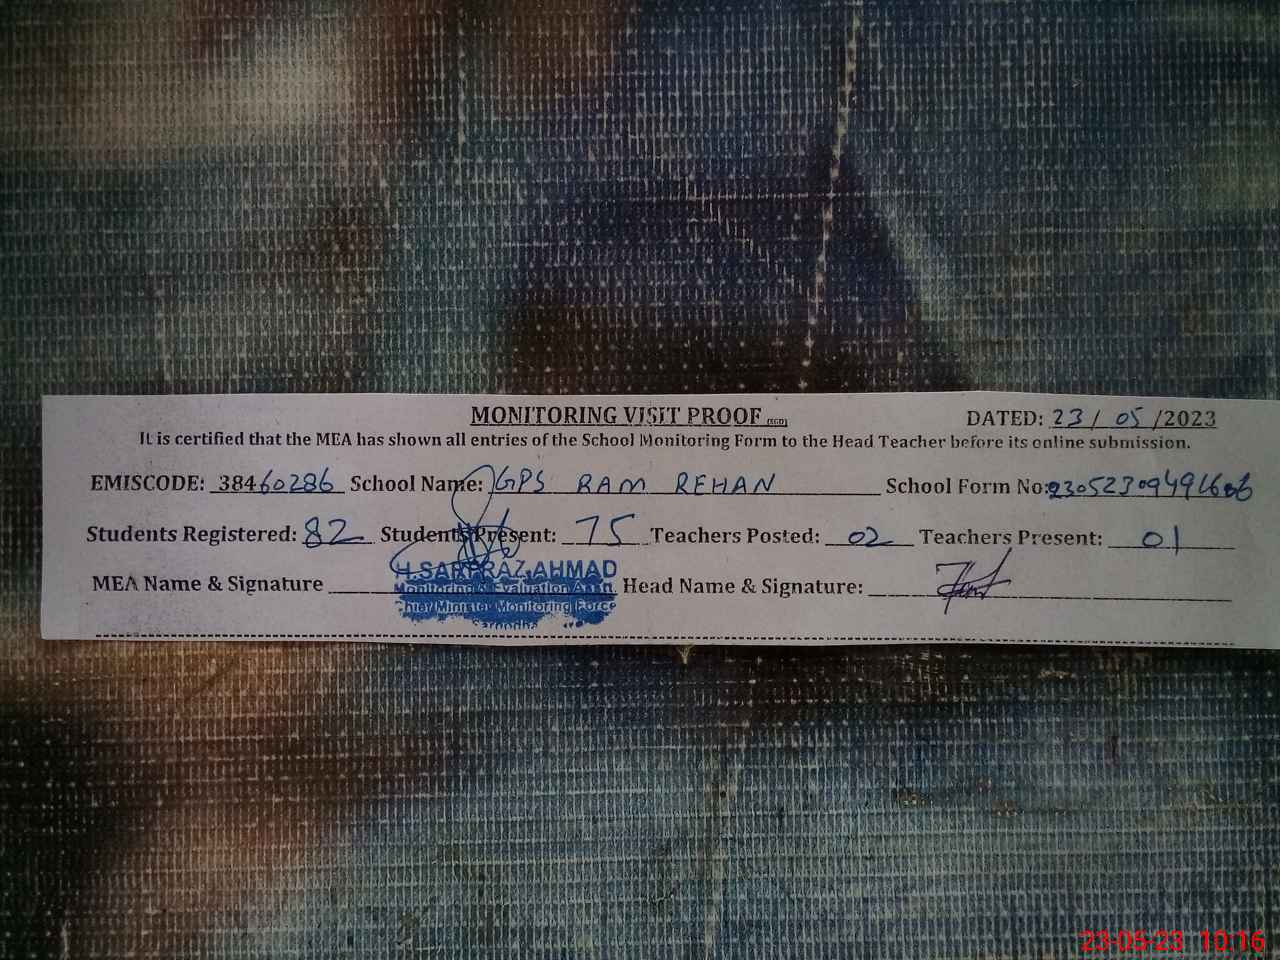 MONITORING VISIT PROOF (SGD) DATED: 23/05/2023
It is certified that the MEA has shown all entries of the School Monitoring Form to the Head Teacher before its online submission.
EMISCODE: 38460286 School Name: GPS RAM REHAN School Form No:
Students Registered: 82 Students Present: 75 Teachers Posted: 02 Teachers Present: 01
MEA Name & Signature H.SARFRAZ AHMAD Head Name & Signature:
Monitoring & Evaluation Asstt.
Chief Minister Monitoring Force
Sargodha
23-05-23 10:16